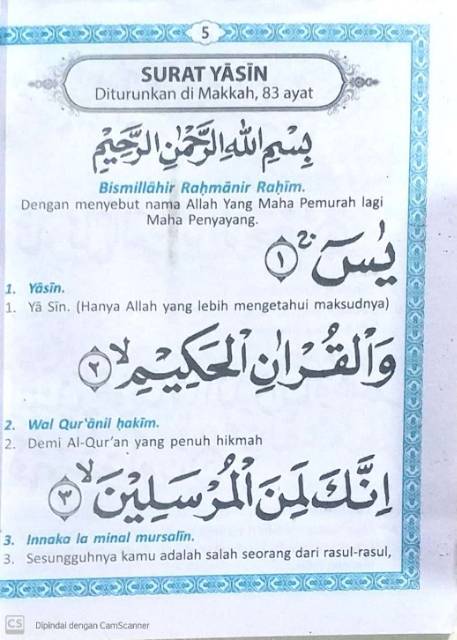 5
SURAT YĀSĪN
Diturunkan di Makkah, 83 ayat
بِسْمِ اللهِ الرَّحْمٰنِ الرَّحِيْمِ
Bismillāhir Raḥmānir Raḥīm.
Dengan menyebut nama Allah Yang Maha Pemurah lagi
Maha Penyayang.
يٰسۤ ۚ ١
1. Yāsīn.
1. Yā Sīn. (Hanya Allah yang lebih mengetahui maksudnya)
وَالْقُرْاٰنِ الْحَكِيْمِۙ ٢
2. Wal Qur'ānil ḥakīm.
2. Demi Al-Qur'an yang penuh hikmah
اِنَّكَ لَمِنَ الْمُرْسَلِيْنَۙ ٣
3. Innaka la minal mursalīn.
3. Sesungguhnya kamu adalah salah seorang dari rasul-rasul,
CS Dipindai dengan CamScanner